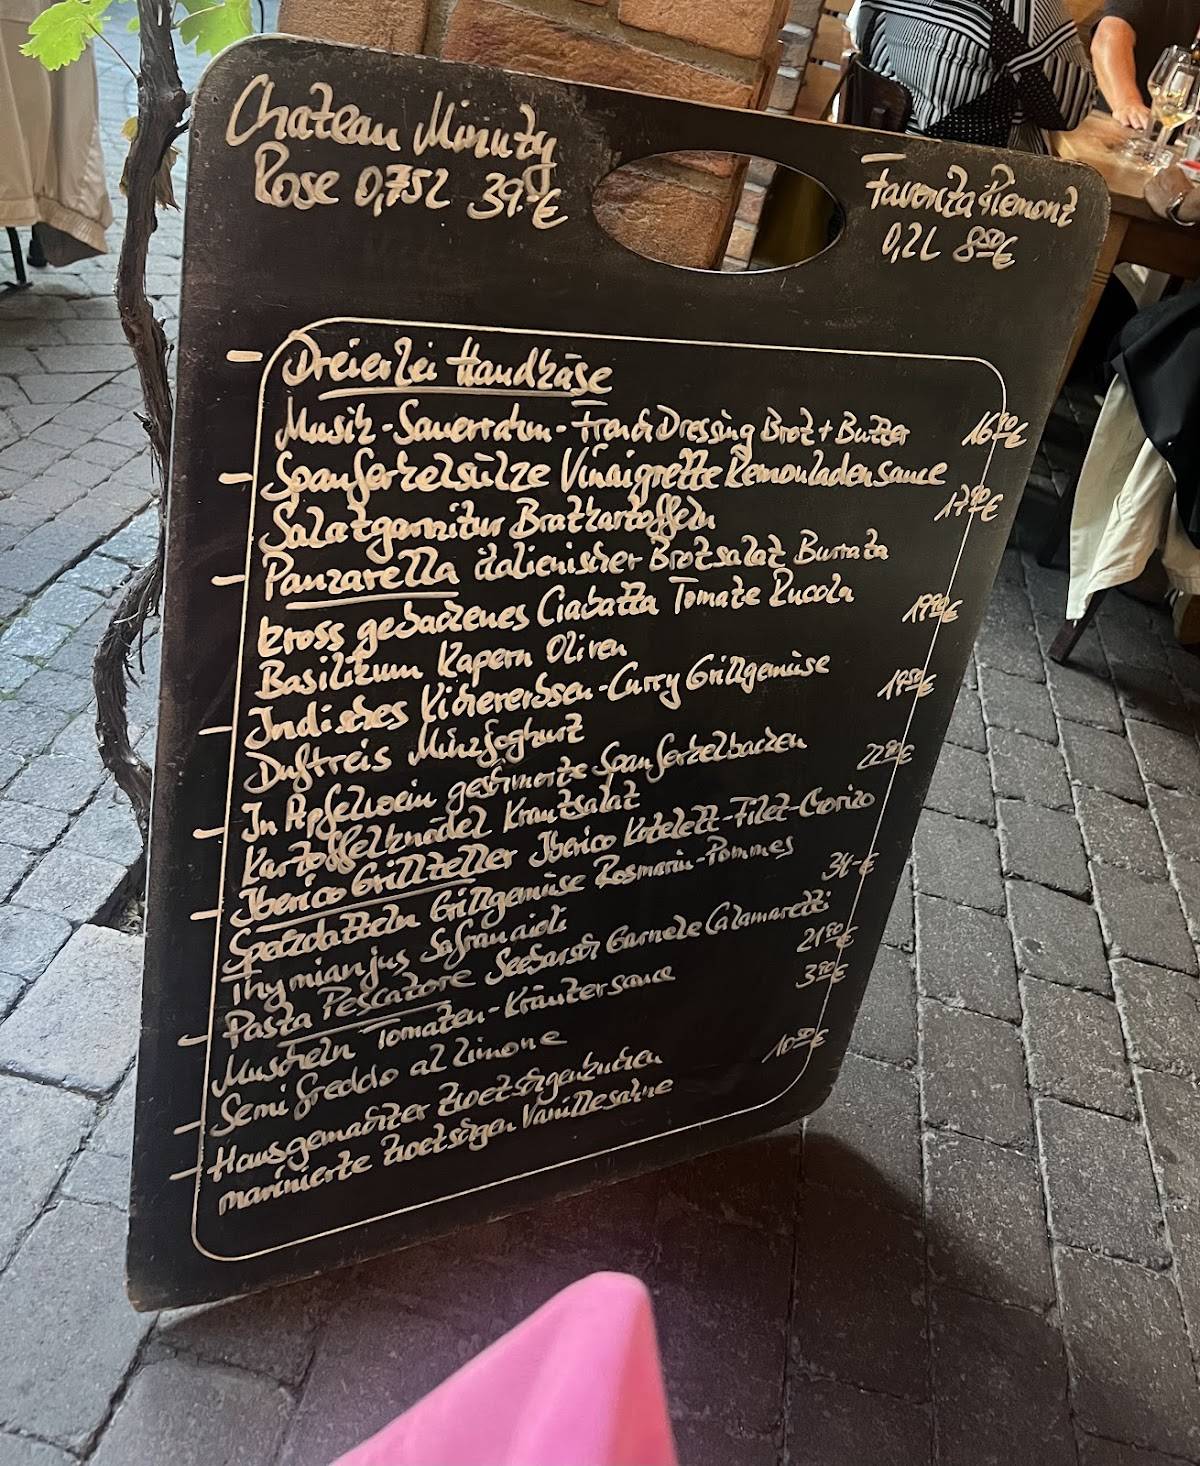 Chateau Minuty
Rose 0,75L 39.-€
Favorita Piemont
0,2L 8.50€
- Dreierlei Handkäse
Musik-Sauerrahm- Dressing Brot + Butter 16.90€
- Spanferkelsülze Vinaigrette Remouladensauce
Salatgarnitur Bratkartoffeln 17.90€
- Panzarella italienischer Brotsalat Burrata
kross gebackenes Ciabatta Tomate Rucola
Basilikum Kapern Oliven 19.90€
- Indisches Kichererbsen-Curry Grillgemüse
Duftreis Minzjoghurt 19.50€
- In Apfelwein geschmorte Spanferkelbacken
Kartoffelknödel Krautsalat 22.90€
- Iberico Grillteller Iberico Kotelett-Filet-Chorizo
Speckdatteln Grillgemüse Rosmarin-Pommes
Thymianjus Safranaioli 34.-€
- Pasta Pescatore Seebarsch Garnele Calamaretti
Muscheln Tomaten-Kräutersauce 21.50€
- Semifreddo al Limone 3.90€
- Hausgemachter Zwetschgenkuchen
marinierte Zwetschgen Vanillesahne 10.50€